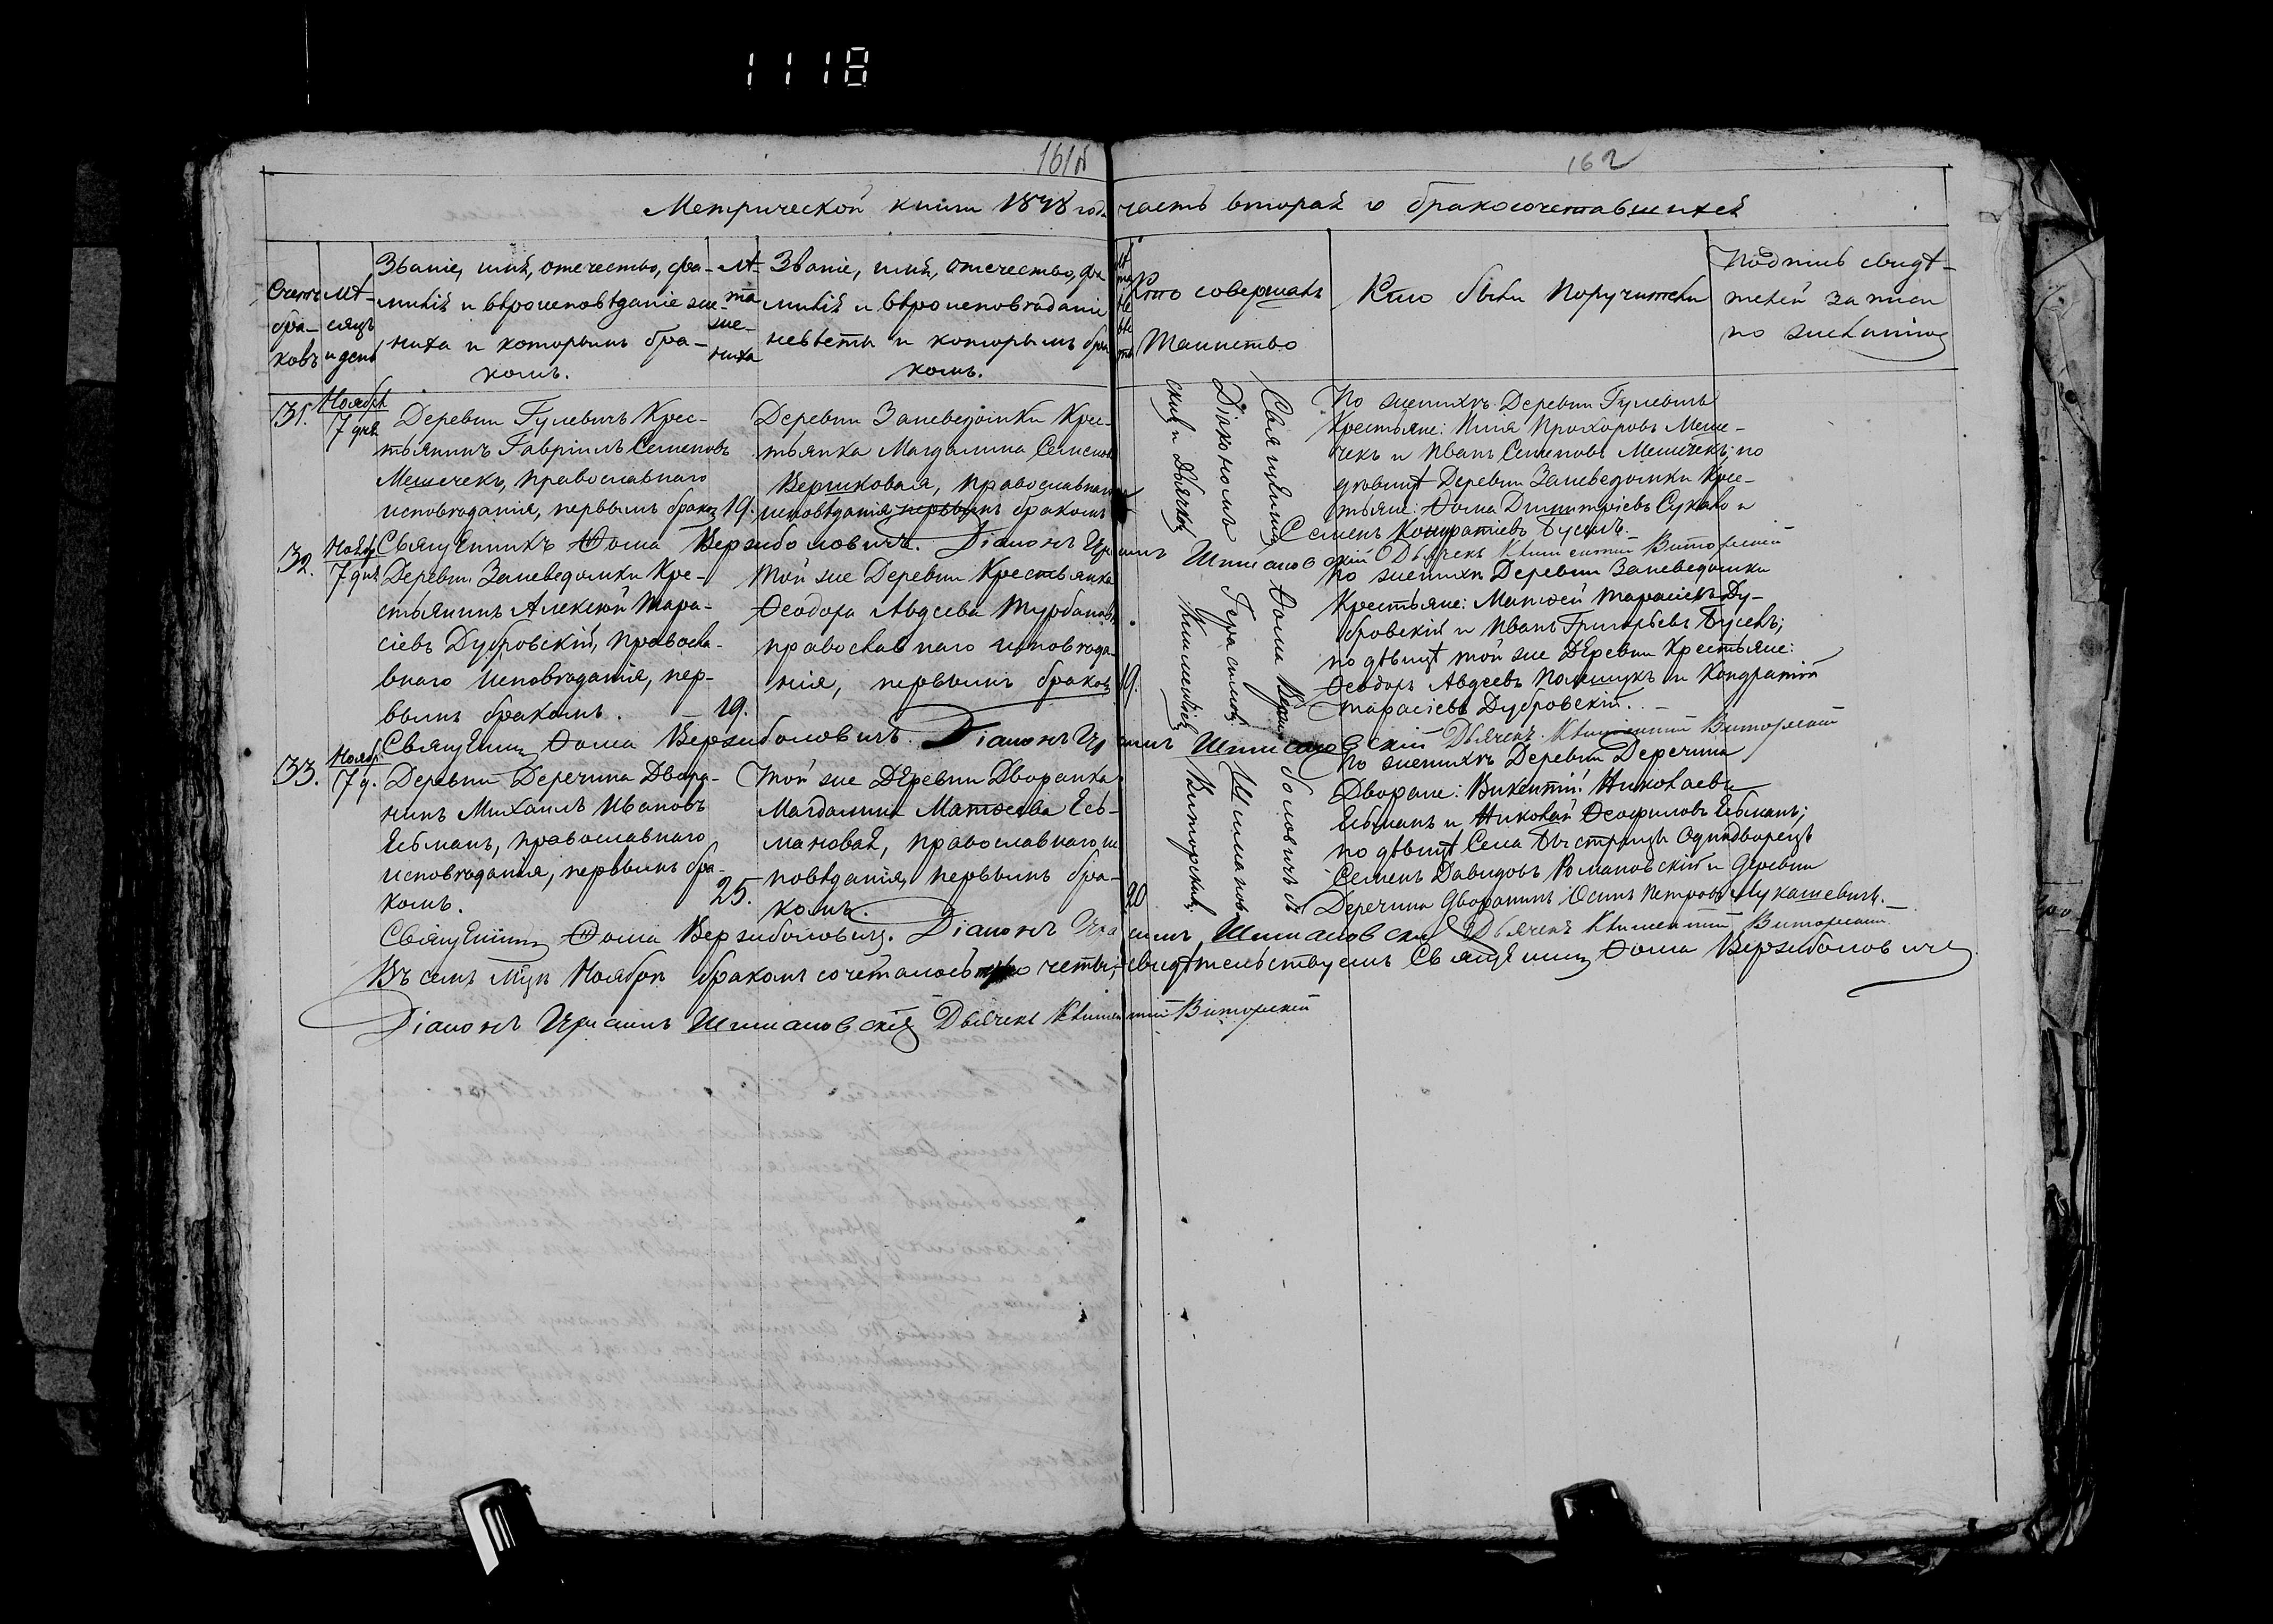 1118
161об
162
Метрической книги 1878 года часть вторая о бракосочетавшихся
Счетъ бра-
ковъ
Мѣ-
сяцъ
и день
Званіе, имя, отечество, фа-
милія и вѣроисповѣданіе же-
ниха и которымъ бра-
комъ.
Лѣ-
та
же-
ниха
Званіе, имя, отечество, фа
милія и вѣроисповѣданіе
невѣсты и которымъ бра
комъ.
Лѣ
та
не
вѣ
сты
Кто совершалъ
Таинство
Кто были поручители
Подпись свидѣ-
телей записи
по желанію
31.
Ноября
7 дня
Деревни Гулевичъ Крес-
тьянинъ Гавріилъ Семеновъ
Мешечекъ, православнаго
исповѣданія, первымъ бракомъ
19.
Деревни Заневедомки Крес-
тьянка Магдалина Семенова
православнаго
исповѣданія первымъ бракомъ
По женихѣ Деревни Гулевичъ
Крестьяне: Илія Прохоровъ Меше-
чекъ и Иванъ Семеновъ Мешечекъ; по
дѣвицѣ Деревни Заневедомки Крес-
тьяне: Ѳома Димитріевъ Сухало и
Семенъ Кондратіевъ Бусель.
Священникъ Ѳома Вержболовичъ. Діаконъ Шиманскій Дьячекъ Климентій Виторскій
32.
Ноябр
7 дня
Деревни Заневедомки Кре-
стьянинъ Алексѣй Тара-
сіевъ Дубровскій, правосла-
внаго исповѣданія, пер-
вымъ бракомъ.
19.
Той же Деревни Крестьянка
Ѳеодора Авдеева
православнаго исповѣда-
нія, первымъ бракомъ
19.
По женихѣ Деревни Заневедомки
Крестьяне: Матѳей Тарасіевъ Ду-
бровскій и Иванъ Григорьевъ Бусель;
по дѣвицѣ той же Деревни Крестьяне:
Ѳеодоръ Авдеевъ Полещукъ и Кондратій
Тарасіевъ Дубровскій.
Священникъ Ѳома Вержболовичъ. Діаконъ Шимановскій Дьячекъ Климентій Виторскій
33.
Ноябр.
7 д.
Деревни Деречина Дворя-
нинъ Михаилъ Ивановъ
Есьманъ, православнаго
исповѣданія, первымъ бра-
комъ.
25.
Той же Деревни Дворянка
Магдалина Матѳеева Есь-
мановая, православнаго ис
повѣданія, первымъ бра-
комъ.
20
По женихѣ Деревни Деречина
Дворяне: Викентій Николаевъ
Есьманъ и Николай Ѳеофиловъ Есьманъ;
по дѣвицѣ Села Быстрицы Однодворецъ
Семенъ Давидовъ Романовскій и Деревни
Деречина дворянинъ Осипъ Петровъ Лукашевичъ.
Священникъ Ѳома Вержболовичъ
Діакономъ Герасимомъ Шиманов-
скимъ и Дьячкомъ Климентіемъ Виторскимъ.
Священникъ Ѳома Вержболовичъ. Діаконъ Шимановскій Дьячекъ Климентій Виторскій
Въ семъ Мцѣ Ноябрѣ бракомъ сочеталось четы, свидѣтельствуемъ Священникъ Ѳома Вержболовичъ
Діаконъ Шимановскій Дьячекъ Климентій Виторскій